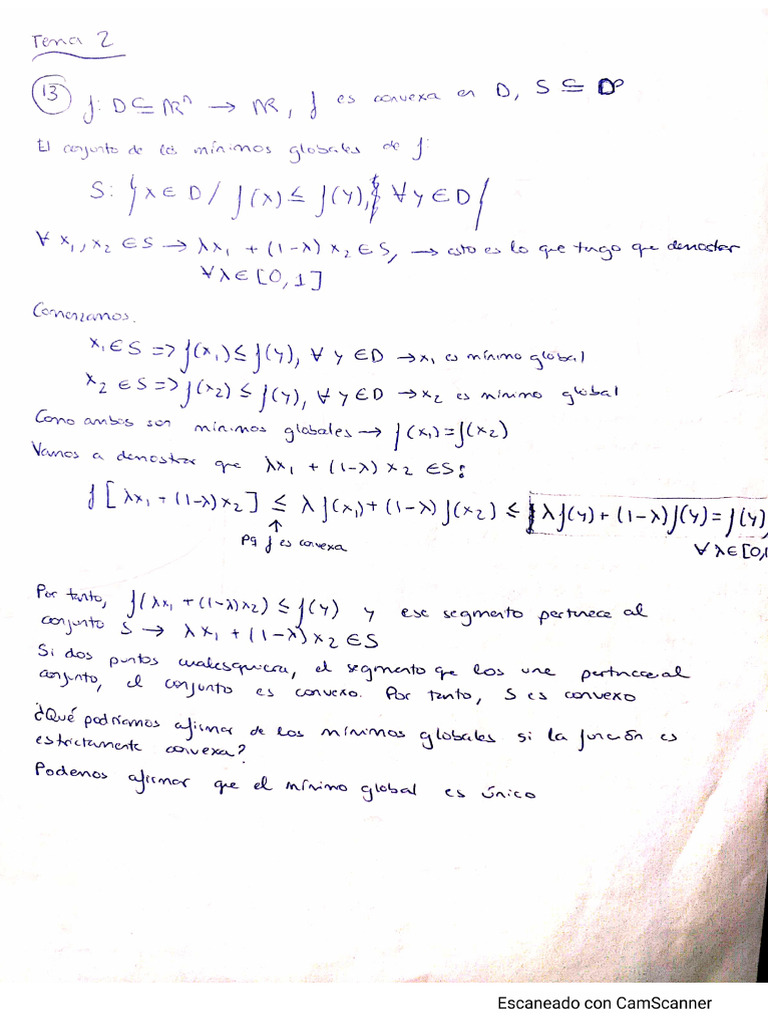 Tema 2
13 f: D ⊆ ℝⁿ → ℝ, f es convexa en D, S ⊆ D
El conjunto de los mínimos globales de f:
S: {x ∈ D / f(x) ≤ f(y), ∀ y ∈ D}
∀ x₁, x₂ ∈ S → λx₁ + (1-λ) x₂ ∈ S, → esto es lo que tengo que demostrar
∀ λ ∈ [0, 1]
Comenzamos.
x₁ ∈ S => f(x₁) ≤ f(y), ∀ y ∈ D → x₁ es mínimo global
x₂ ∈ S => f(x₂) ≤ f(y), ∀ y ∈ D → x₂ es mínimo global
Como ambos son mínimos globales → f(x₁) = f(x₂)
Vamos a demostrar que λx₁ + (1-λ) x₂ ∈ S:
f[λx₁ + (1-λ)x₂] ≤ λ f(x₁) + (1-λ) f(x₂) ≤ λf(y) + (1-λ)f(y) = f(y)
↑
pq f es convexa
∀ λ ∈ [0,
Por tanto, f(λx₁ + (1-λ)x₂) ≤ f(y) y ese segmento pertenece al
conjunto S → λx₁ + (1-λ)x₂ ∈ S
Si dos puntos cualesquiera, el segmento que los une pertenece al
conjunto, el conjunto es convexo. Por tanto, S es convexo
¿Qué podríamos afirmar de los mínimos globales si la función es
estrictamente convexa?
Podemos afirmar que el mínimo global es único
Escaneado con CamScanner